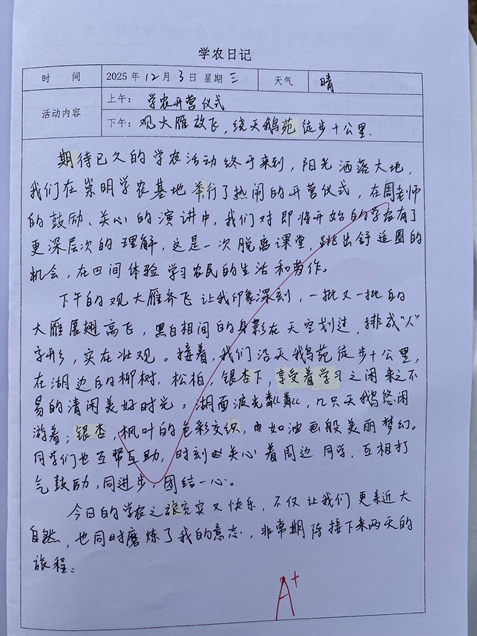 学农日记
时 间 2025年12月3日 星期三 天气 晴
活动内容 上午：学农开营仪式
下午：观大雁放飞，绕天鹅苑徒步十公里.
期待已久的学农活动终于来到，阳光洒落大地，
我们在崇明学农基地举行了热闹的开营仪式，在周老师
的鼓励、关心的演讲中，我们对即将开始的学农有了
更深层次的理解，这是一次脱离课堂，跳出舒适圈的
机会，在田间体验学习农民的生活和劳作。
下午的观大雁齐飞让我印象深刻，一批又一批的
大雁展翅高飞，黑白相间的身影在天空划过，排成“人”
字形，实在壮观。接着，我们沿天鹅苑徒步十公里，
在湖边的柳树，松柏，银杏下，享受着学习之闲来之不
易的清闲美好时光。湖面波光粼粼，几只天鹅悠闲
游着；银杏，枫叶的色彩交织，由如油画般美丽梦幻。
同学们也互帮互助，时刻关心着周边同学，互相打
气鼓励，同进步，团结一心。
今日的学农之旅充实又快乐，不仅让我们更亲近大
自然，也同时磨炼了我的意志，非常期待接下来两天的
旅程。
A+